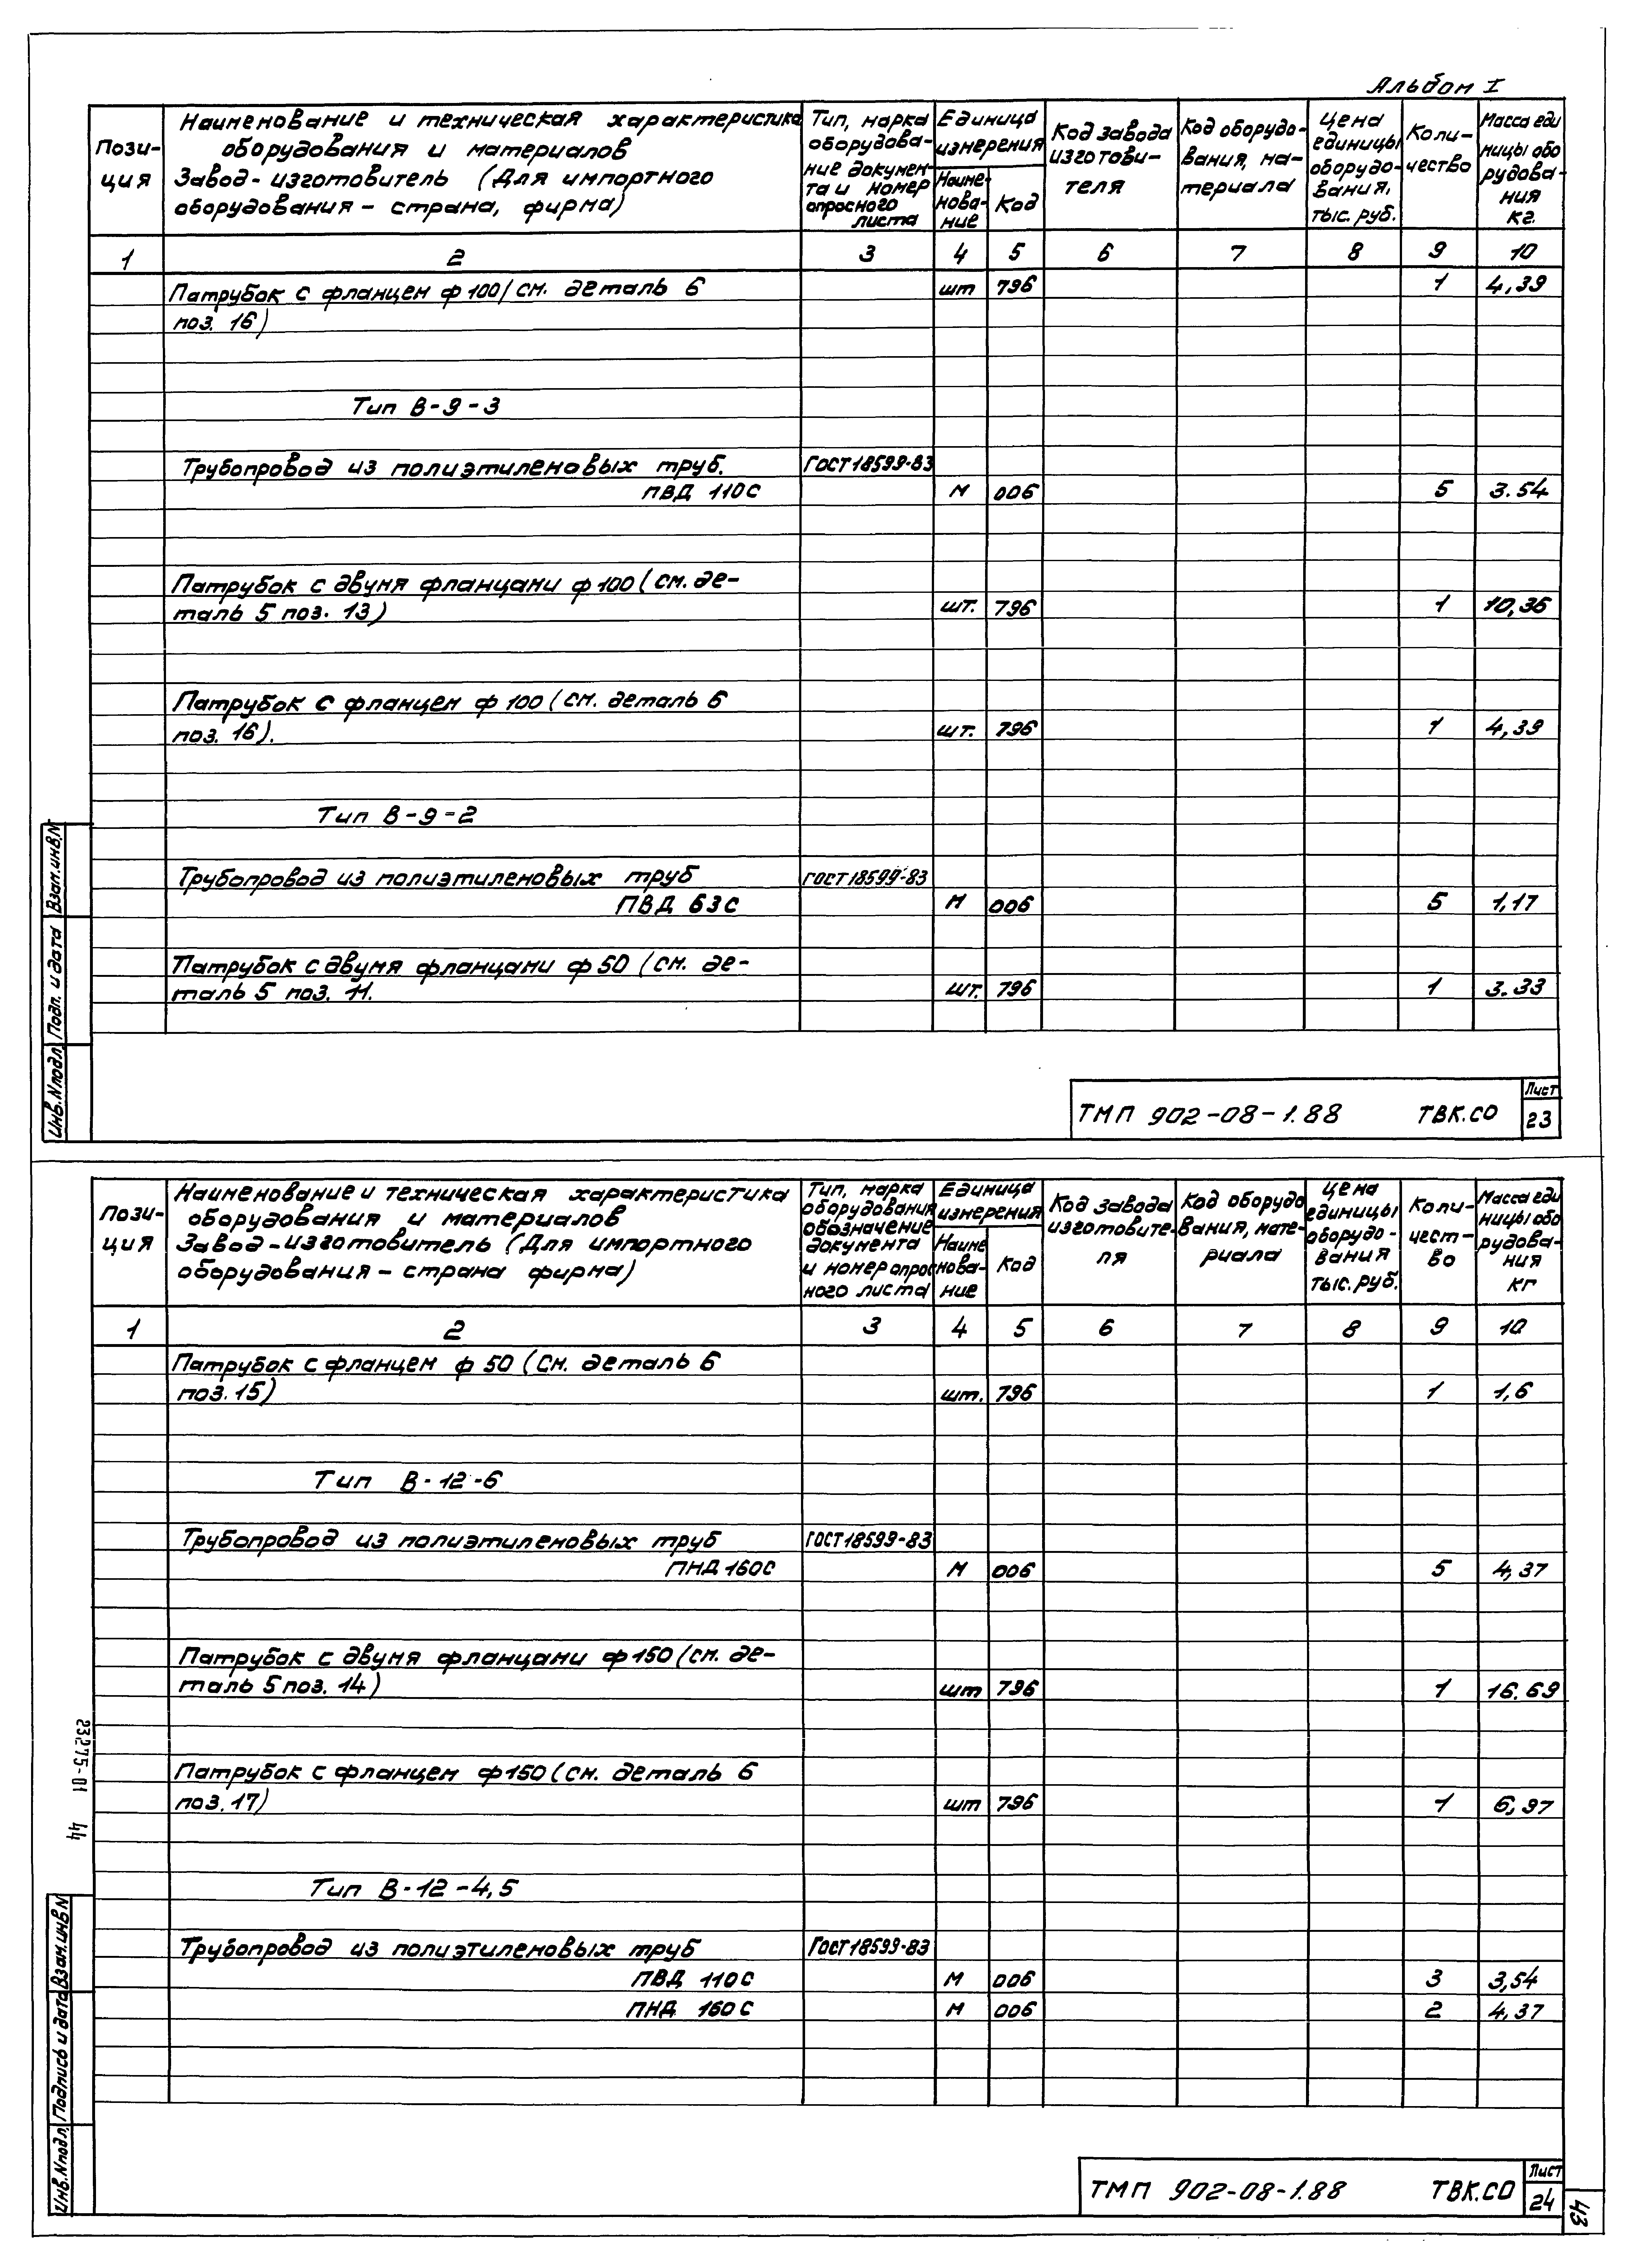 Альбом I
Пози-
ция
Наименование и техническая характеристика
оборудования и материалов
Завод-изготовитель (Для импортного
оборудования - страна, фирма)
Тип, марка
оборудова-
ние докумен-
та и номер
опросного
листа
Единица
измерения
Наиме-
нова-
ние
Код
Код завода
изготови-
теля
Код оборудо-
вания, ма-
териала
Цена
единицы
оборудо-
вания,
тыс. руб.
Коли-
чество
Масса еди
ницы обо
рудова-
ния
кг.
1 2 3 4 5 6 7 8 9 10
Патрубок с фланцем ф 100/см. деталь 6 шт 796 1 4,39
поз. 16)
Тип В-9-3
Трубопровод из полиэтиленовых труб. ГОСТ 18599-83
ПВД 110С М 006 5 3.54
Патрубок с двумя фланцами ф 100 (см. де-
таль 5 поз. 13) шт. 796 1 10,36
Патрубок с фланцем ф 100 (см. деталь 6
поз. 16). шт. 796 1 4,39
Тип В-9-2
Трубопровод из полиэтиленовых труб ГОСТ 18599-83
ПВД 63С М 006 5 1,17
Патрубок с двумя фланцами ф 50 (см. де-
таль 5 поз. 11. шт. 796 1 3.33
Инв.N подл. Подп. и дата Взам.инв.N
ТМП 902-08-1.88 ТВК.СО
Лист
23
Пози-
ция
Наименование и техническая характеристика
оборудования и материалов
Завод-изготовитель (Для импортного
оборудования - страна фирма)
Тип, марка
оборудования
обозначение
документа
и номер опрос
ного листа
Единица
измерения
Наиме
нова-
ние
Код
Код завода
изготовите-
ля
Код оборудо
вания, мате-
риала
Цена
единицы
оборудо-
вания
тыс. руб.
Коли-
чест-
во
Масса еди
ницы обо
рудова-
ния
кг
1 2 3 4 5 6 7 8 9 10
Патрубок с фланцем ф 50 (см. деталь 6
поз. 15) шт. 796 1 1,6
Тип В-12-6
Трубопровод из полиэтиленовых труб ГОСТ 18599-83
ПНД 160С М 006 5 4,37
Патрубок с двумя фланцами ф 150 (см. де-
таль 5 поз. 14) шт 796 1 16.69
Патрубок с фланцем ф 150 (см. деталь 6
поз. 17) шт 796 1 6,97
Тип В-12-4,5
Трубопровод из полиэтиленовых труб ГОСТ 18599-83
ПВД 110С М 006 3 3,54
ПНД 160С М 006 2 4,37
23275-01 44
Инв.N подл. Подпись и дата Взам.инв N
ТМП 902-08-1.88 ТВК.СО
Лист
24
43